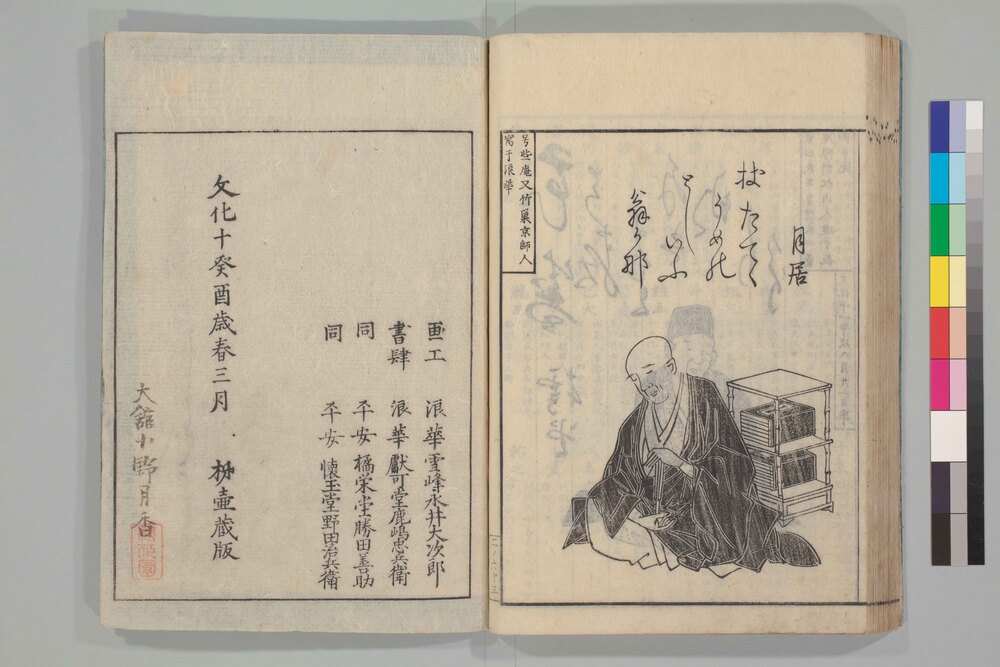 月居
梅たてゝ
うめの
としいふ
翁か那
号些庵又竹巣京師人
寓于浪華
画工 浪華雪峰永井大次郎
書肆 浪華獻可堂鹿嶋忠兵衛
同 平安橘栄堂勝田善助
同 平安懐玉堂野田治兵衛
文化十癸酉歳春三月 
壷蔵版
大舘小野月香